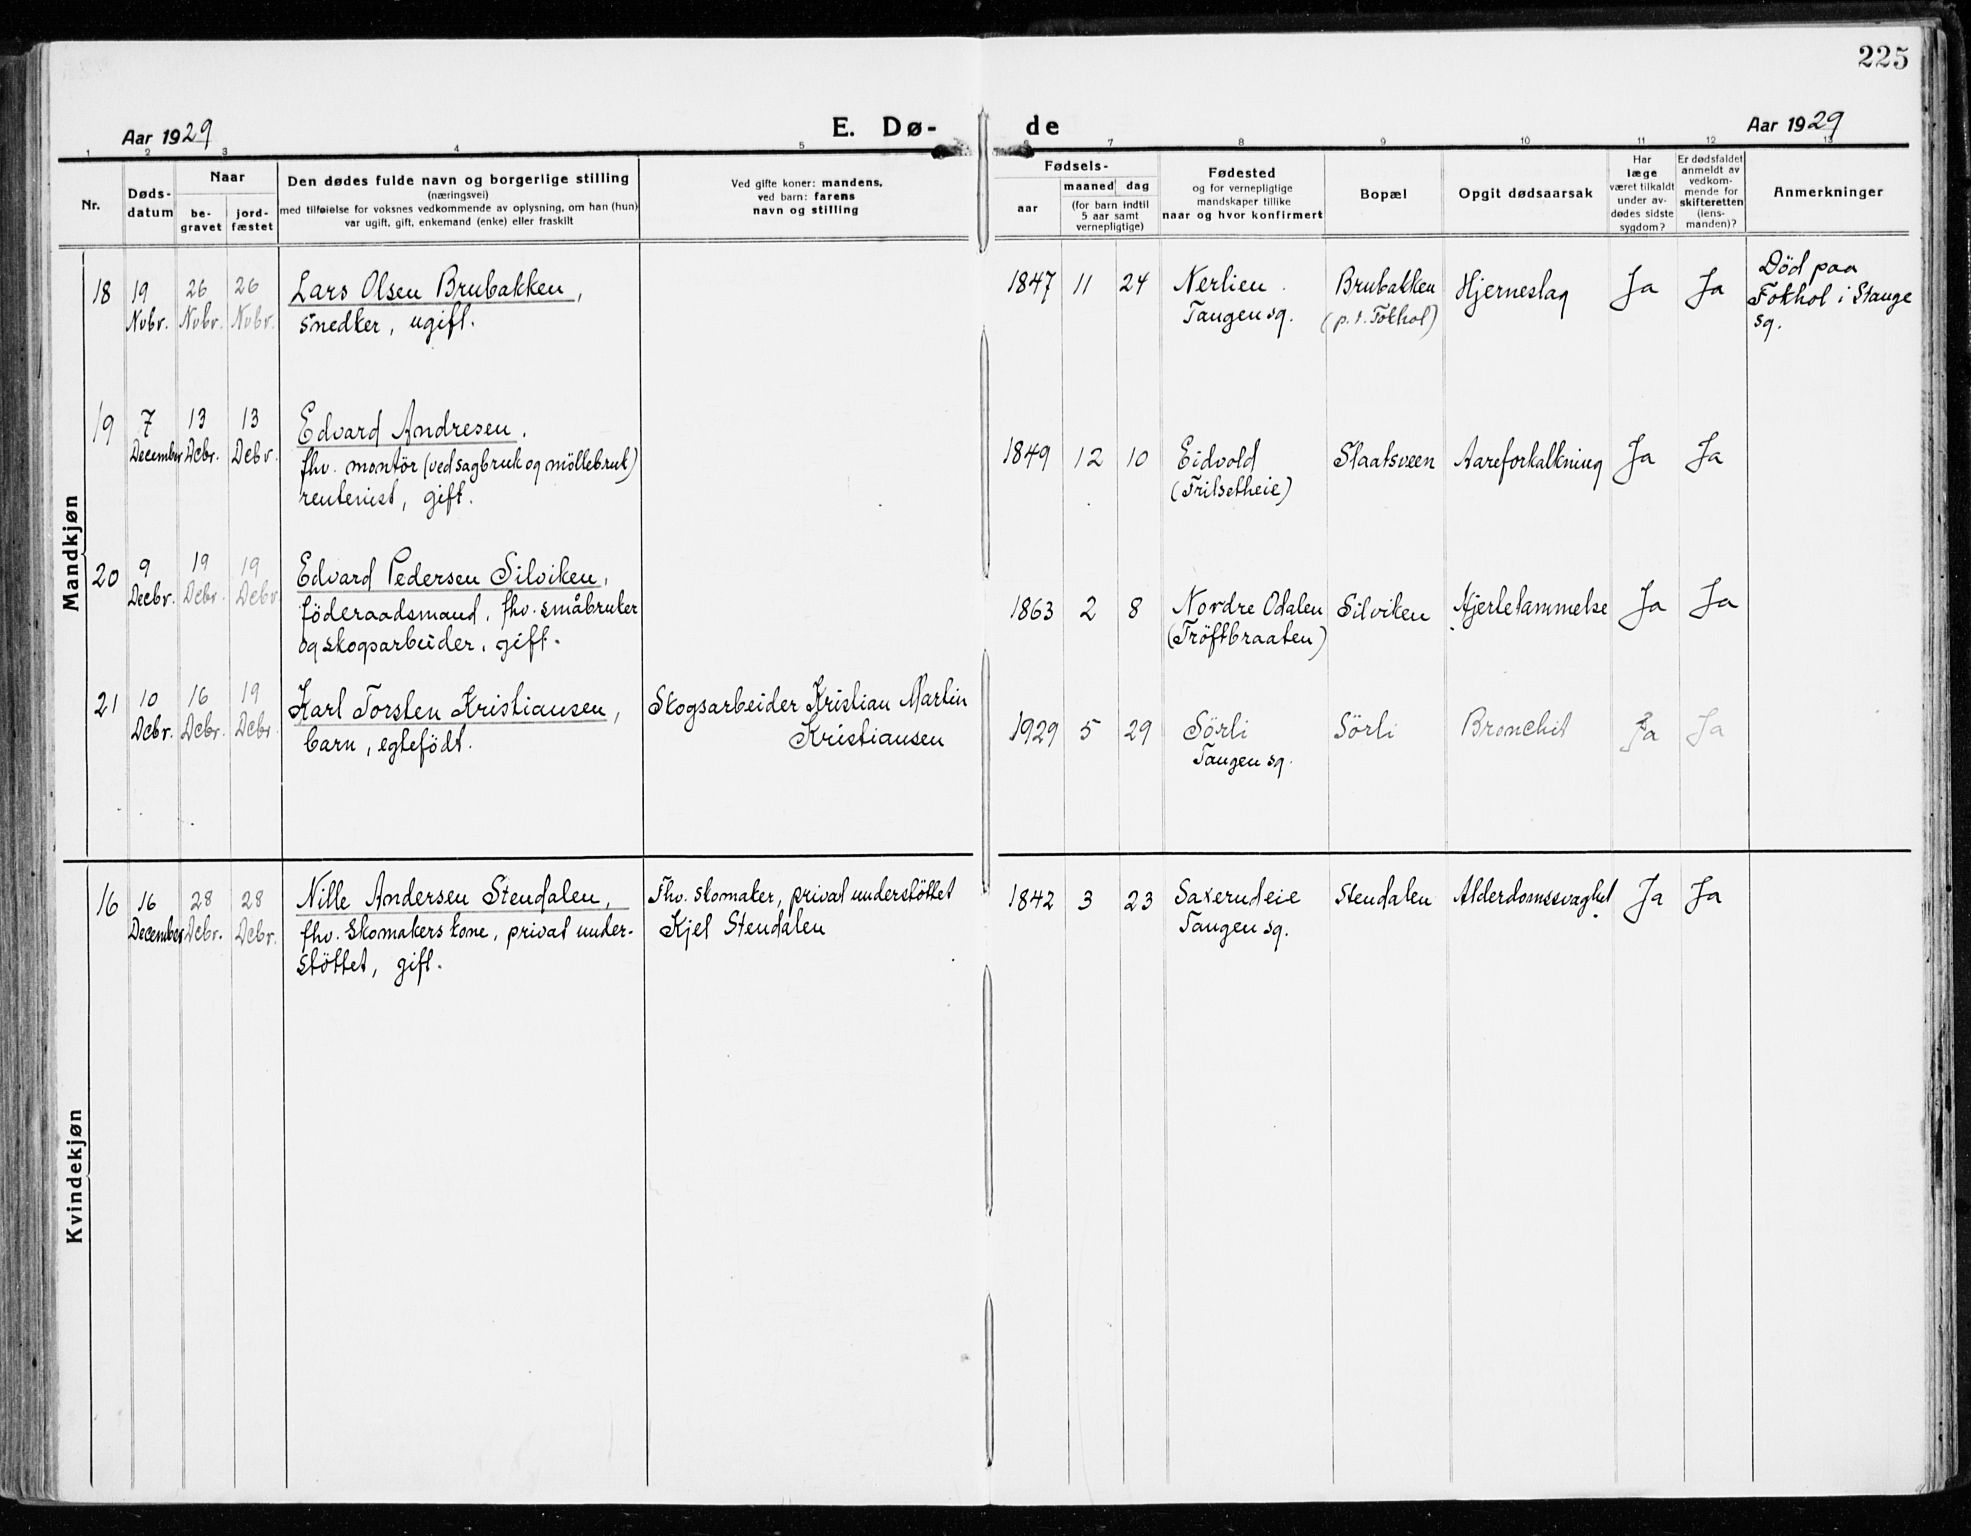 225
Aar 1929
E. Dø-
de
Aar 1929
1 2 3 4 5 6 7 8 9 10 11 12 13
Nr.
Døds-
datum
Naar
be-
gravet
jord-
fæstet
Den dødes fulde navn og borgerlige stilling
(næringsvei)
med tilføielse for voksnes vedkommende av oplysning, om han (hun)
var ugift, gift, enkemand (enke) eller fraskilt
Ved gifte koner: mandens,
ved barn: farens
navn og stilling
Fødsels-
aar
maaned dag
(for barn indtil
5 aar samt
vernepligtige)
Fødested
og for vernepligtige
mandskaper tillike
naar og hvor konfirmert
Bopæl
Opgit dødsaarsak
Har
læge
været tilkaldt
under av-
dødes sidste
sygdom?
Er dødsfaldet
anmeldt av
vedkom-
mende for
skifteretten
(lens-
manden)?
Anmerkninger
Mandkjøn
18 19 26 26 Lars Olsen Brubakken, 1847 11 24 Nerlien. Brubakken Hjerneslag Ja Ja Død paa
Nvbr. Nvbr. Nvbr. snedker, ugift. Tangen sg. (p.t. Fokhol) Fokhol i Stange
sg.
19 7 13 13 Edvard Andresen.
December Dcbr. Debr. fhv. montör (ved sagbruk og möllebruk) 1849 12 10 Eidvold Slaatsveen Aareforkalkning Ja Ja
rentenist, gift. (Frilsetheie)
20 9 19 19 Edvard Pedersen Silviken,
Decbr. Dcbr. Dcbr föderaadsmand, fhv. småbruker 1863 2 8 Nordre Odalen Silviken Hjertelammelse Ja Ja
og skogsarbeider, gift. (Tröftbraaten)
21 10 16 19 Karl Torsten Kristiansen, Skogsarbeider Kristian Martin
Dcbr. Dcbr. Dcbr. barn, egtefödt. Kristiansen 1929 5 29 Sörli Sörli Bronchit Ja Ja
Tangen sg.
Kvindekjøn
16 16 28 28 Nille Andersen Stendalen, Fhv. skomaker, privat understöttet 1842 3 23 Saxerudeie Stendalen Alderdomssvaghet Ja Ja
December Dcbr. Dcbr. fhv. skomakers kone, privat under- Kjel Stendalen Tangen sg.
stöttet, gift.